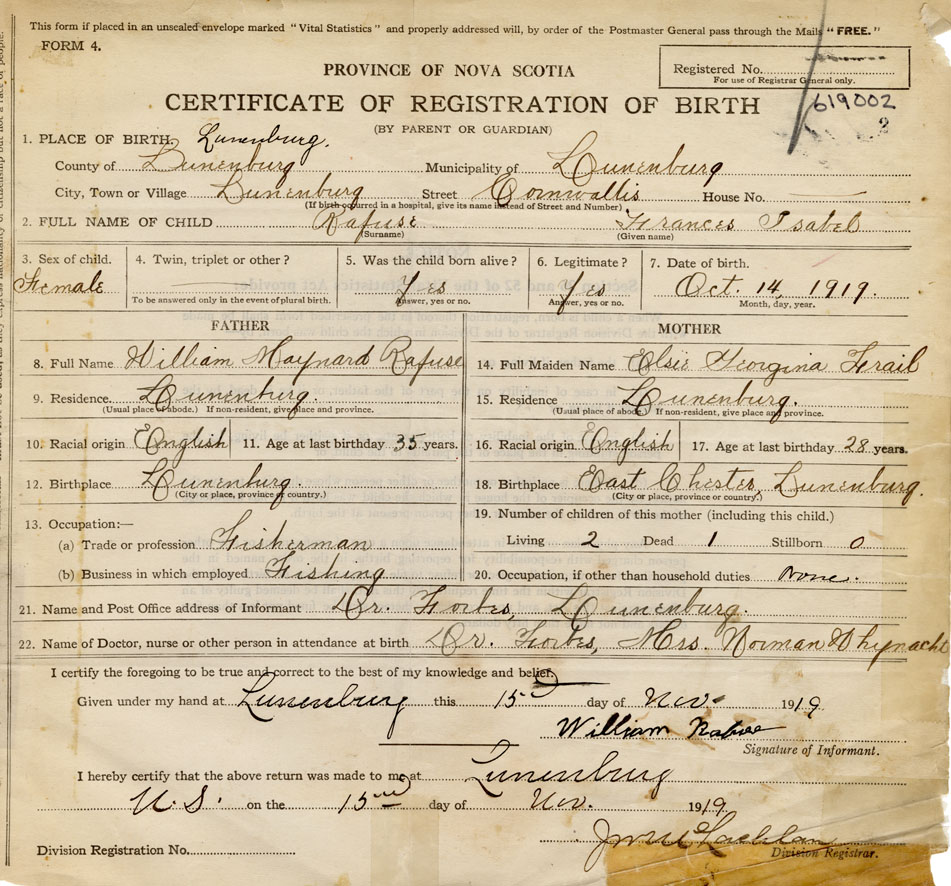 This form if placed in an unsealed envelope marked "Vital Statistics" and properly addressed will, by order of the Postmaster General pass through the Mails "FREE."
FORM 4.
Registered No.
For use of Registrar General only.
PROVINCE OF NOVA SCOTIA
CERTIFICATE OF REGISTRATION OF BIRTH
619002
(BY PARENT OR GUARDIAN)
1. PLACE OF BIRTH. Lunenburg.
County of Lunenburg Municipality of Lunenburg
City, Town or Village Lunenburg Street Cornwallis House No.
(If birth occurred in a hospital, give its name instead of Street and Number)
2. FULL NAME OF CHILD Rafuse Frances Isabel
(Surname) (Given name)
3. Sex of child. 4. Twin, triplet or other? 5. Was the child born alive? 6. Legitimate? 7. Date of birth.
Female Yes Yes Oct. 14, 1919.
To be answered only in the event of plural birth. Answer, yes or no. Answer, yes or no. Month, day, year.
FATHER MOTHER
8. Full Name William Maynard Rafuse 14. Full Maiden Name Elsie Georgina Frail
9. Residence Lunenburg. 15. Residence Lunenburg.
(Usual place of abode.) If non-resident, give place and province. (Usual place of abode. If non-resident, give place and province.
10. Racial origin English 11. Age at last birthday 35 years. 16. Racial origin English 17. Age at last birthday 28 years.
12. Birthplace Lunenburg. 18. Birthplace East Chester, Lunenburg.
(City or place, province or country.) (City or place, province or country.)
13. Occupation:— 19. Number of children of this mother (including this child.)
(a) Trade or profession Fisherman Living 2 Dead 1 Stillborn 0
(b) Business in which employed Fishing 20. Occupation, if other than household duties None.
21. Name and Post Office address of Informant Dr. Forbes, Lunenburg.
22. Name of Doctor, nurse or other person in attendance at birth Dr. Forbes, Mrs. Norman Whynacht
I certify the foregoing to be true and correct to the best of my knowledge and belief.
Given under my hand at Lunenburg this 15 day of Nov. 1919
William Rafuse
Signature of Informant.
I hereby certify that the above return was made to me at Lunenburg
N.S. on the 15 day of Nov. 1919
Division Registration No. Division Registrar.